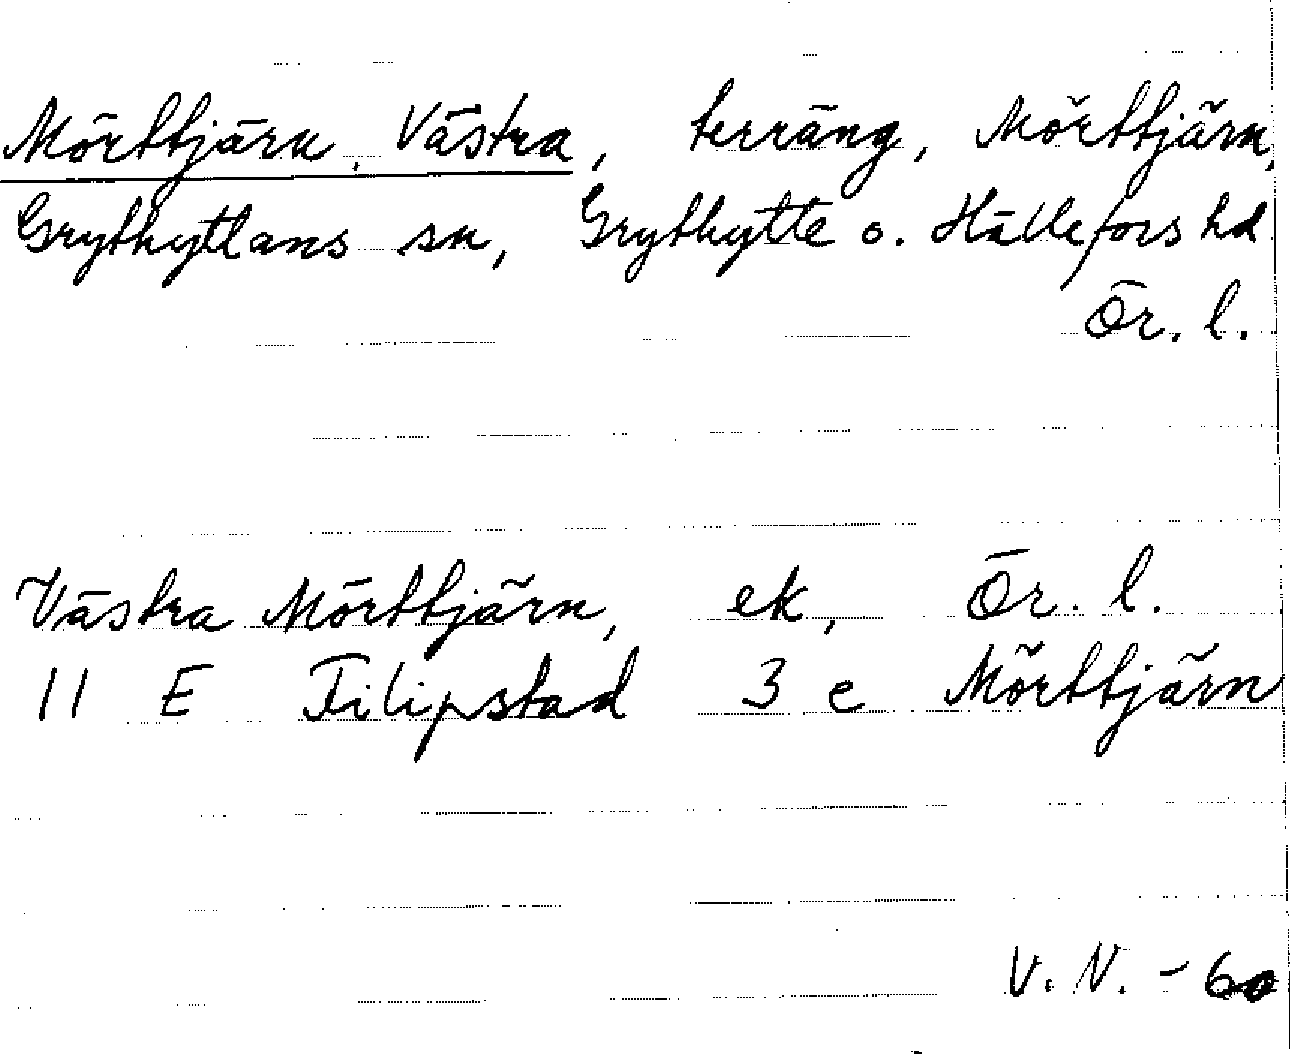 Mörttjärn, Västra, terräng, Mörttjärn,
Grythyttans sn, Grythytte o. Hällefors hd
Ör. l.
Västra Mörttjärn, ek, Ör. l.
11 E Filipstad 3 e Mörttjärn
V. N. - 60